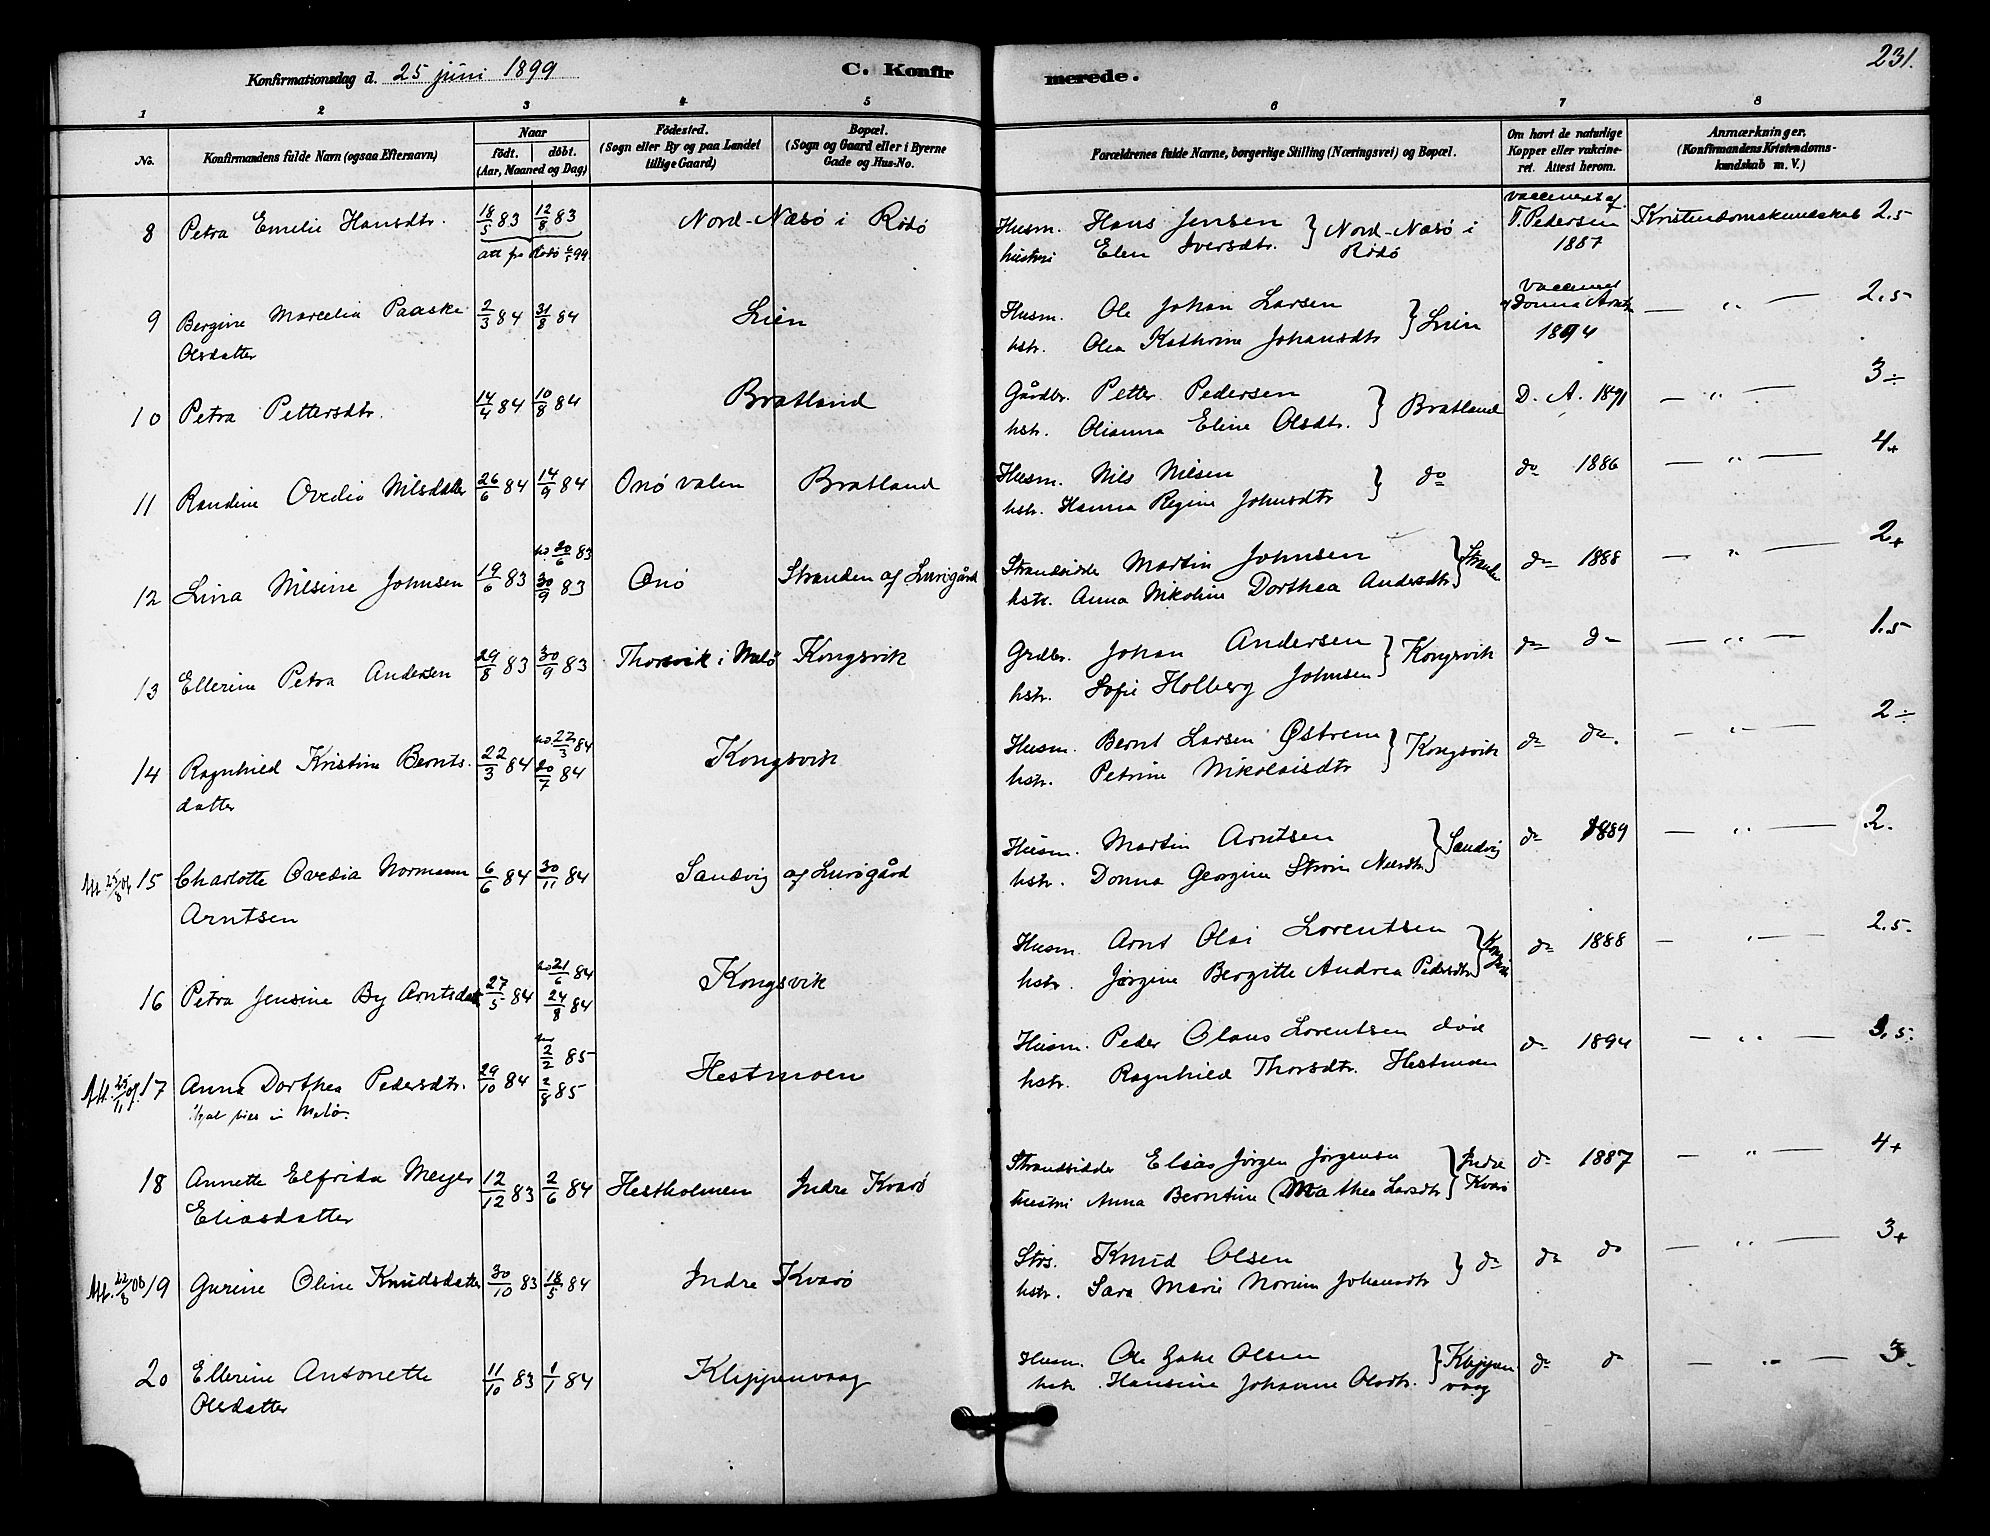 231.
Konfirmationsdag d. 25 juni 1899 C. Konfirmerede.
1 2 3 4 5 6 7 8
No.
Konfirmandens fulde Navn (ogsaa Efternavn)
Naar
födt. döbt.
(Aar, Maaned og Dag)
Födested.
(Sogn eller By og paa Landet
tillige Gaard)
Bopæl.
(Sogn og Gaard eller i Byerne
Gade og Hus-No.
Forældrenes fulde Navne, borgerlige Stilling (Næringsvei) og Bopæl.
Om havt de naturlige
Kopper eller vakcine-
ret. Attest herom.
Anmærkninger.
(Konfirmandens Kristendoms-
kundskab m. V.)
8 Petra Emelie Hansdtr. 18/5 83 12/8 83 Nord-Næsø i Rødø Husm. Hans Jensen } Nord-Næsø i T. Pedersen Kristendomskundskab 2.5
att fra Rødø 99 hustru Elen Iversdtr. Rødø 1887
9 Bergine Marcelia Paaske 2/3 84 31/8 84 Lien Husm. Ole Johan Larsen } Lien Donna 2,5
Olsdatter hstr. Olea Kathrine Johansdtr 1894
10 Petra Pettersdtr. 14/4 84 10/8 84 Bratland Gårdbr. Petter Pedersen } Bratland D. A. 1891 — „ — 3 ÷
hst. Olianna Eline Olsdtr.
11 Randine Ovedia Nilsdatter 26/6 84 14/9 84 Onøvalen Bratland Husm. Nils Nilsen } do do 1886 — „ — 4+
hst. Hanna Regine Johnsdtr
12 Lina Nilsine Johnsen 19/6 83 hd 20/6 83 30/9 83 Onø Stranden af Lurøgård Strandsidder Martin Johnsen } Strand do 1888 — „ — 2+
hstr. Anna Nikoline Dorthea Andersdtr
13 Ellerine Petra Andersen 29/8 83 30/9 83 Thorsvik i Melø Kongsvik Grdbr. Johan Andersen } Kongsvik do do — „ — 1.5
hstr. Sofie Holberg Johnsen
14 Ragnhild Kristine Bernts- 22/3 84 hd 22/3 84 20/7 84 Kongsvik Husm. Bernt Larsen Østrem } Kongsvik do do. — „ — 2 ÷
datter hst. Petrine Nikolaisdtr
Att. 15 Charlotte Ovedia Normann 6/6 84 30/11 84 Sandvig af Lurøgård Husm. Martin Arntsen } Sandvig do 1889 — „ — 2.
Arntsen hst. Donna Georgine Strøm Nilsdtr
16 Petra Jensine By Arntsdat 27/5 84 hd 21/6 84 24/8 84 Kongsvik Husm. Arnt Olai Lorentsen do 1888 — „ — 2.5.
hstr. Jørgine Bergitte Andrea Pedersdtr
Att. 17 Anna Dorthea Pedersdtr. 29/10 84 2/2 85 2/8 85 Hestmoen Husm. Peder Olaus Lorentsen død do 1894 — „ — 3,5.
i Melø. hstr. Ragnhild Thorsdtr. Hestmoen
18 Annette Elfrida Meyer 12/12 83 2/6 84 Hestholmen Indre Kvarø Strandsidder Elias Jørgen Jørgensen } Indre do 1887 — „ — 4+
Eliasdatter hustru Anna Berntine Mathea Larsdtr Kvarø
Att. 22/8 19 Gurine Oline Knudsdatter 30/10 83 18/5 84 Indre Kvarø Strs. Knud Olsen } do do do — „ — 3+
hstr. Sara Marie Norum Johansdtr
20 Ellerine Antonette 11/10 83 1/1 84 Klippenvaag Husm. Ole Olsen } Klippen- do do — „ — 3.
Olsdatter hstr. Hansine Johanne Olsdtr. vaag